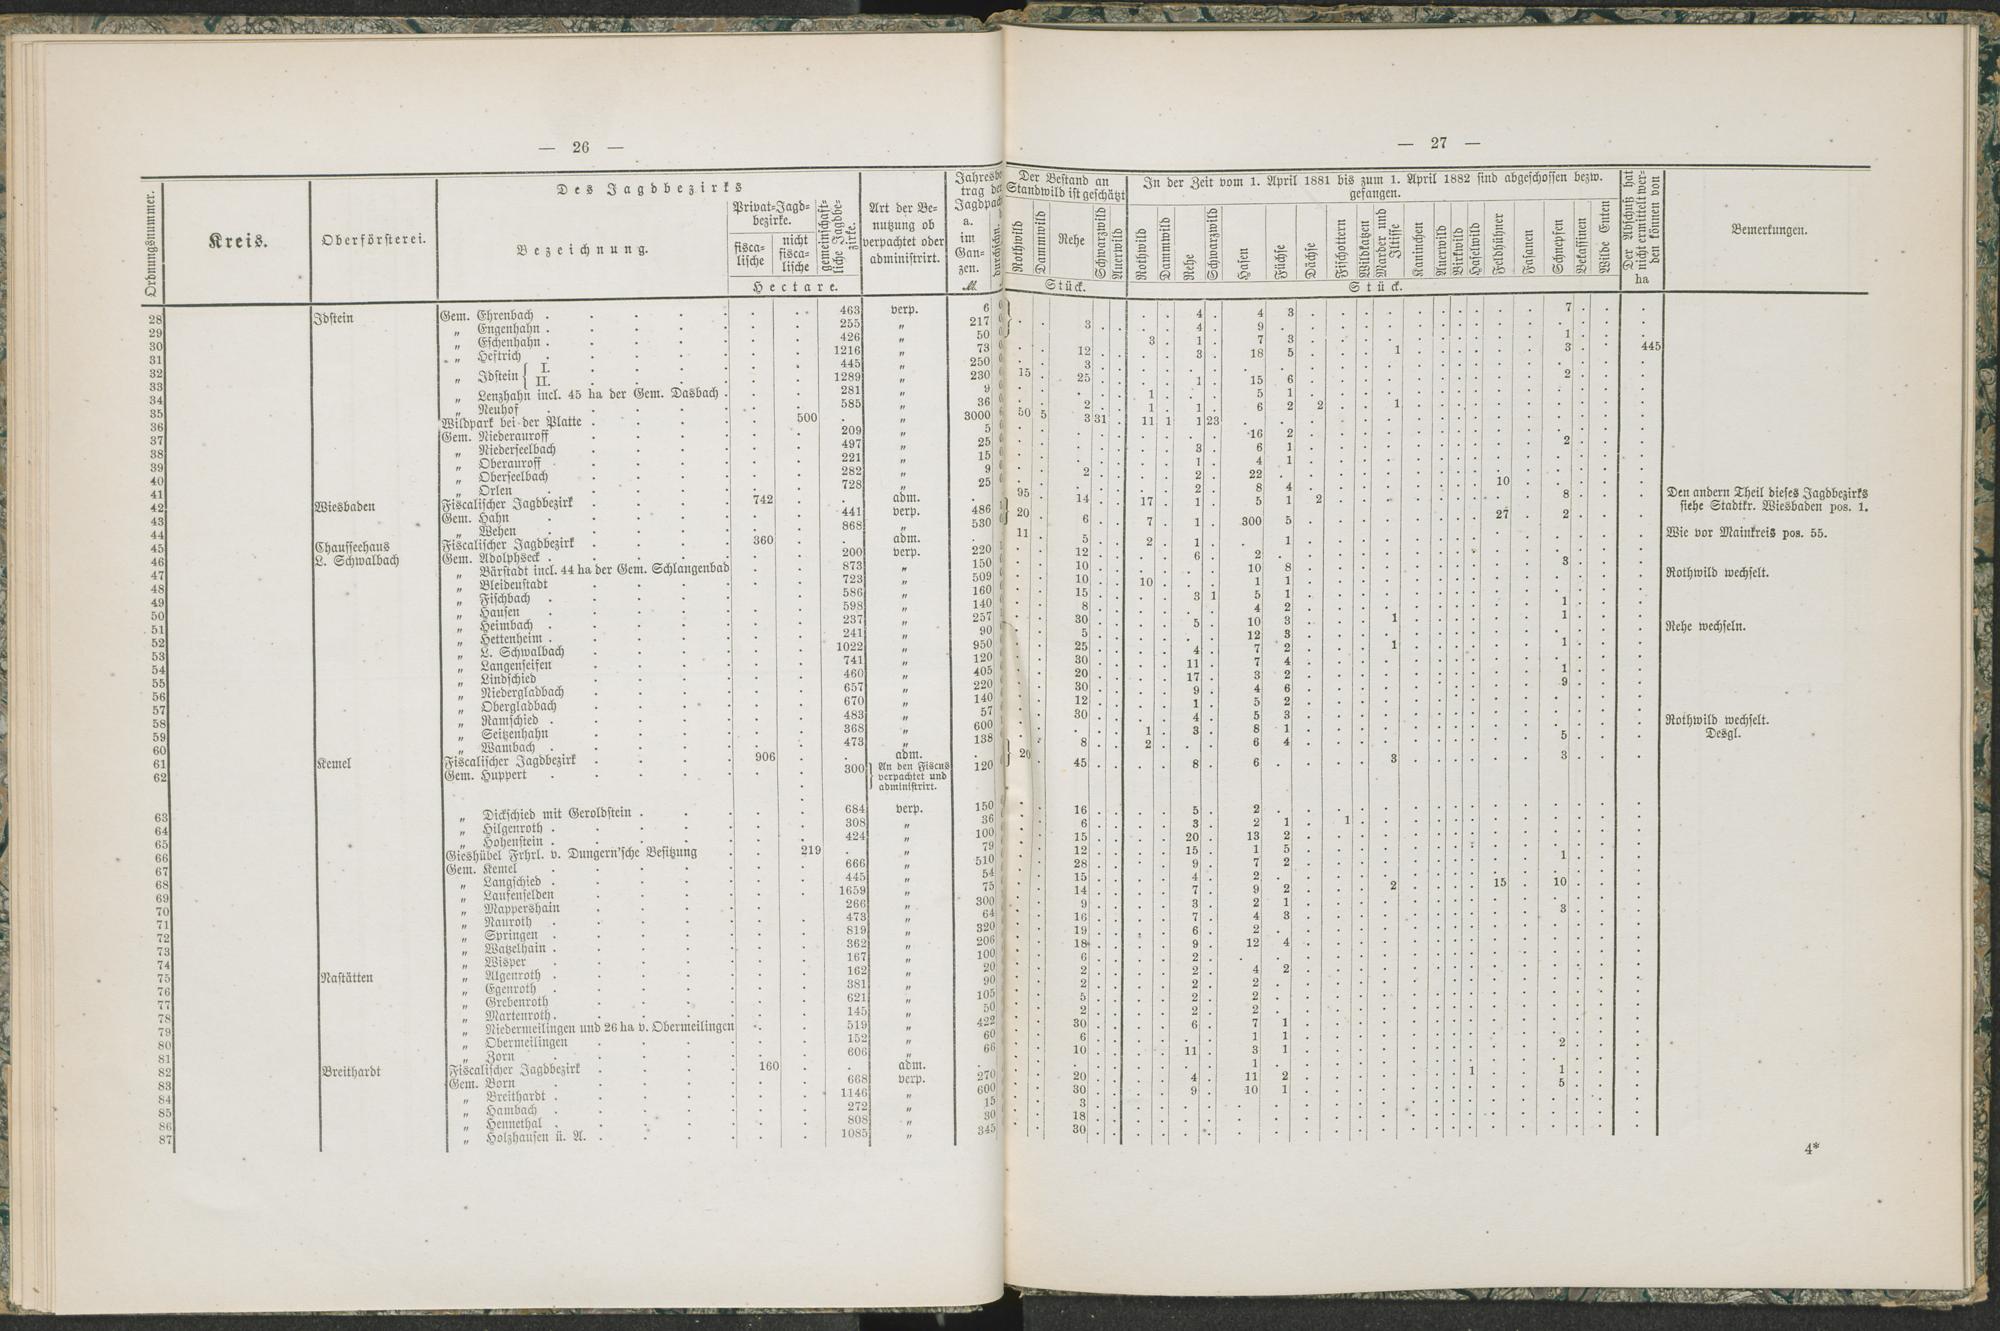 — 26 —
Ordnungsnummer.
Kreis.
Oberförsterei.
Des Jagdbezirks
Bezeichnung.
Privat-Jagdbezirke.
fiscalische
nicht fiscalische
gemeinschaftliche Jagdbezirke.
Hectare.
Art der Benutzung ob verpachtet oder administrirt.
a. im Ganzen.
M.
28 Idstein Gem. Ehrenbach . 463 verp. 6
29 „ Engenhahn . 255 „ 217
30 „ Eschenhahn . 426 „ 50
31 „ Heftrich . 1216 „ 73
32 „ Idstein { I. 445 „ 250
33 II. 1289 „ 230
34 „ Lenzhahn incl. 45 ha der Gem. Dasbach . 281 „ 9
35 „ Neuhof . 585 „ 36
36 Wildpark bei der Platte . 500 . „ 3000
37 Gem. Niederauroff 209 „ 5
38 „ Niederseelbach 497 „ 25
39 „ Oberauroff . 221 „ 15
40 „ Oberseelbach 282 „ 9
41 „ Orlen . 728 „ 25
42 Wiesbaden Fiscalischer Jagdbezirk . 742 . . adm. .
43 Gem. Hahn . 441 verp. 486
44 „ Wehen . 868 „ 530
45 Chausseehaus Fiscalischer Jagdbezirk . 360 . . adm. .
46 L. Schwalbach Gem. Adolphseck . 200 verp. 220
47 „ Bärstadt incl. 44 ha der Gem. Schlangenbad 873 „ 150
48 „ Bleidenstadt 723 „ 509
49 „ Fischbach . 586 „ 160
50 „ Hausen . 598 „ 140
51 „ Heimbach . 237 „ 257
52 „ Hettenheim . 241 „ 90
53 „ L. Schwalbach 1022 „ 950
54 „ Langenseifen 741 „ 120
55 „ Lindschied 460 „ 405
56 „ Niedergladbach 657 „ 220
57 „ Obergladbach 670 „ 140
58 „ Ramschied . 483 „ 57
59 „ Seitzenhahn 368 „ 600
60 „ Wambach . 473 „ 138
61 Kemel Fiscalischer Jagdbezirk . 906 . . adm. .
62 Gem. Huppert . 300 } An den Fiscus verpachtet und administrirt. 120
63 „ Dickschied mit Geroldstein . 684 verp. 150
64 „ Hilgenroth . 308 „ 36
65 „ Hohenstein . 424 „ 100
66 Gieshübel Frhrl. v. Dungern'sche Besitzung . 219 . „ 79
67 Gem. Kemel . 666 „ 510
68 „ Langschied . 445 „ 54
69 „ Laufenselden 1659 „ 75
70 „ Mappershain 266 „ 300
71 „ Nauroth . 473 „ 64
72 „ Springen . 819 „ 320
73 „ Watzelhain . 362 „ 206
74 „ Wisper . 167 „ 100
75 Nastätten „ Algenroth . 162 „ 20
76 „ Egenroth . 381 „ 90
77 „ Grebenroth 621 „ 105
78 „ Martenroth . 145 „ 50
79 „ Niedermeilingen und 26 ha v. Obermeilingen 519 „ 422
80 „ Obermeilingen 152 „ 60
81 „ Zorn . 606 „ 66
82 Breithardt Fiscalischer Jagdbezirk . 160 . . adm. .
83 Gem. Born . 668 verp. 270
84 „ Breithardt . 1146 „ 600
85 „ Hambach . 272 „ 15
86 „ Hennethal . 808 „ 30
87 „ Holzhausen ü. A. . 1085 „ 345
— 27 —
Der Bestand an Standwild ist geschätzt
Rothwild
Dammwild
Rehe
Schwarzwild
Auerwild
Stück.
In der Zeit vom 1. April 1881 bis zum 1. April 1882 sind abgeschossen bezw. gefangen.
Rothwild
Dammwild
Rehe
Schwarzwild
Hasen
Füchse
Dächse
Fischottern
Wildkatzen
Marder und Iltisse
Kaninchen
Auerwild
Birkwild
Haselwild
Feldhühner
Fasanen
Schnepfen
Bekassinen
Wilde Enten
Stück.
Der Abschuß hat nicht ermittelt werden können von
ha
Bemerkungen.
4 4 3 7
3 4 9
3 1 7 3 1
12 3 18 5 1 3 445
3
15 25 1 15 6 2
1 5 1
2 1 1 6 2 2 1
50 5 3 31 11 1 1 23
16 2
3 6 1 2
1 4 1
2 2 22
2 8 4 10
95 14 17 1 5 1 2 8 Den andern Theil dieses Jagdbezirks siehe Stadtkr. Wiesbaden pos. 1.
20 6 7 1 300 5 27 2
11 5 2 1 1 Wie vor Mainkreis pos. 55.
12 6 2
10 10 8 3 Rothwild wechselt.
10 10 1 1
15 3 1 5 1
8 4 2 1
30 5 10 3 1 1
5 12 3 Rehe wechseln.
25 4 7 2 1 1
30 11 7 4
20 17 3 2 1
30 9 4 6 9
12 1 5 2
30 4 5 3
1 3 8 1 Rothwild wechselt.
8 2 6 4 5 Desgl.
20 45 8 6 3 3
16 5 2
6 3 2 1 1
15 20 13 2
12 15 1 5
28 9 7 2 1
15 4 2
14 7 9 2 2 15 10
9 3 2 1
16 7 4 3 3
19 6 2
18 9 12 4
6 2
2 2 4 2
2 2 2
5 2 2
2 2 2
30 6 7 1
6 1 1
10 11 3 1 2
1
20 4 11 2 1 1
30 9 10 1 5
3
18
30
4*